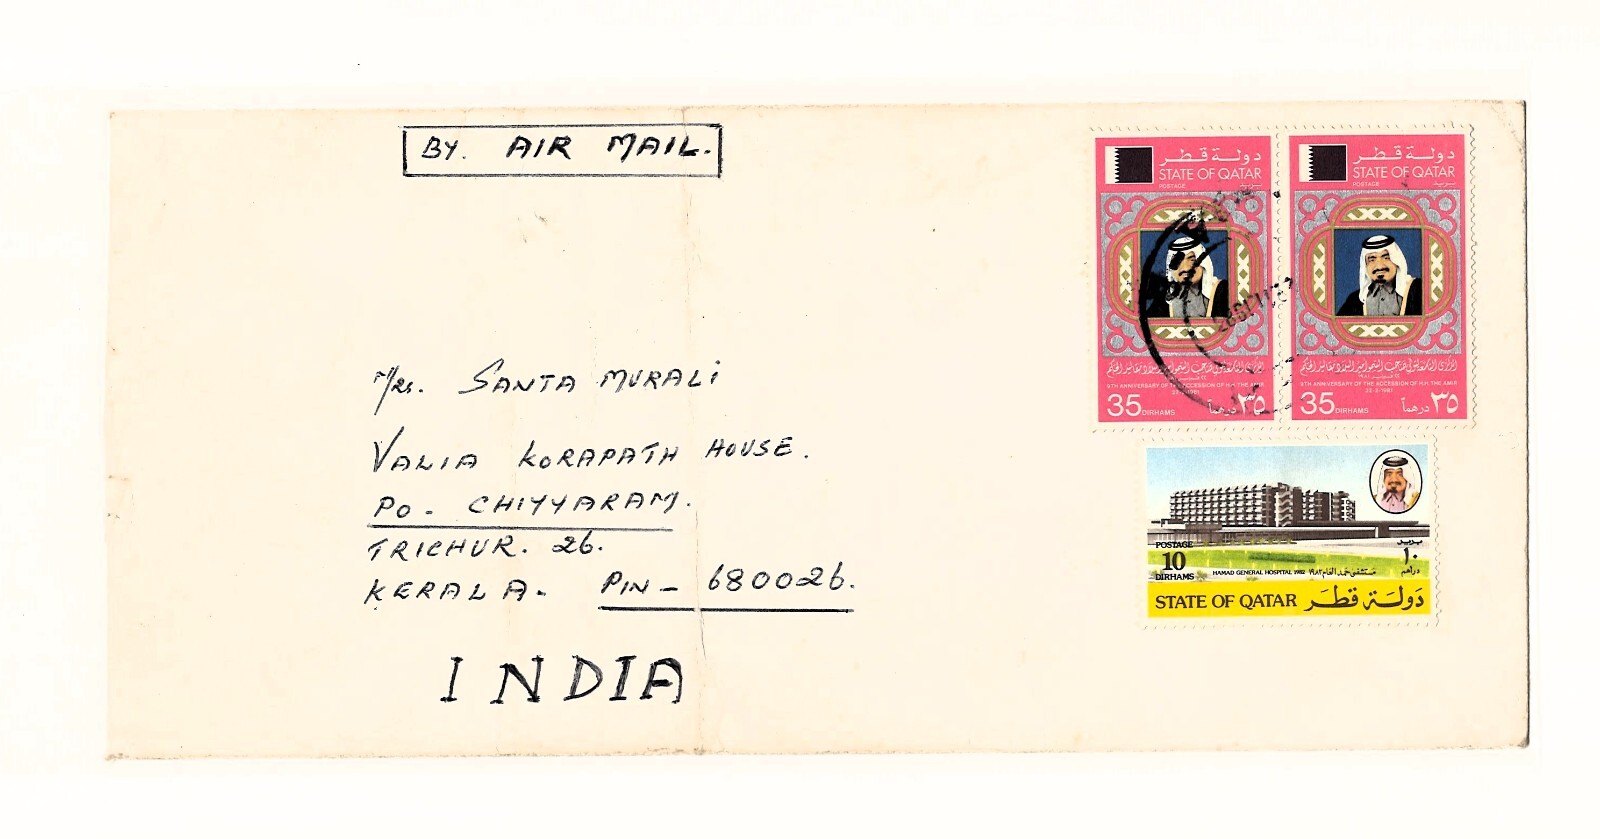 BY. AIR MAIL.
دولة قطر
STATE OF QATAR
POSTAGE بريد
9TH ANNIVERSARY OF THE ACCESSION OF H.H. THE AMIR
22-2-1981
35 DIRHAMS ٣٥ درهماً
دولة قطر
STATE OF QATAR
POSTAGE بريد
9TH ANNIVERSARY OF THE ACCESSION OF H.H. THE AMIR
22-2-1981
35 DIRHAMS ٣٥ درهماً
Mrs. SANTA MURALI
VALIA KORAPATH HOUSE.
PO - CHIYYARAM.
TRICHUR. 26.
KERALA. PIN - 680026.
INDIA
POSTAGE بريد
10 ١٠
DIRHAMS دراهم
HAMAD GENERAL HOSPITAL 1982 مستشفى حمد العام ١٩٨٢
STATE OF QATAR دولة قطر